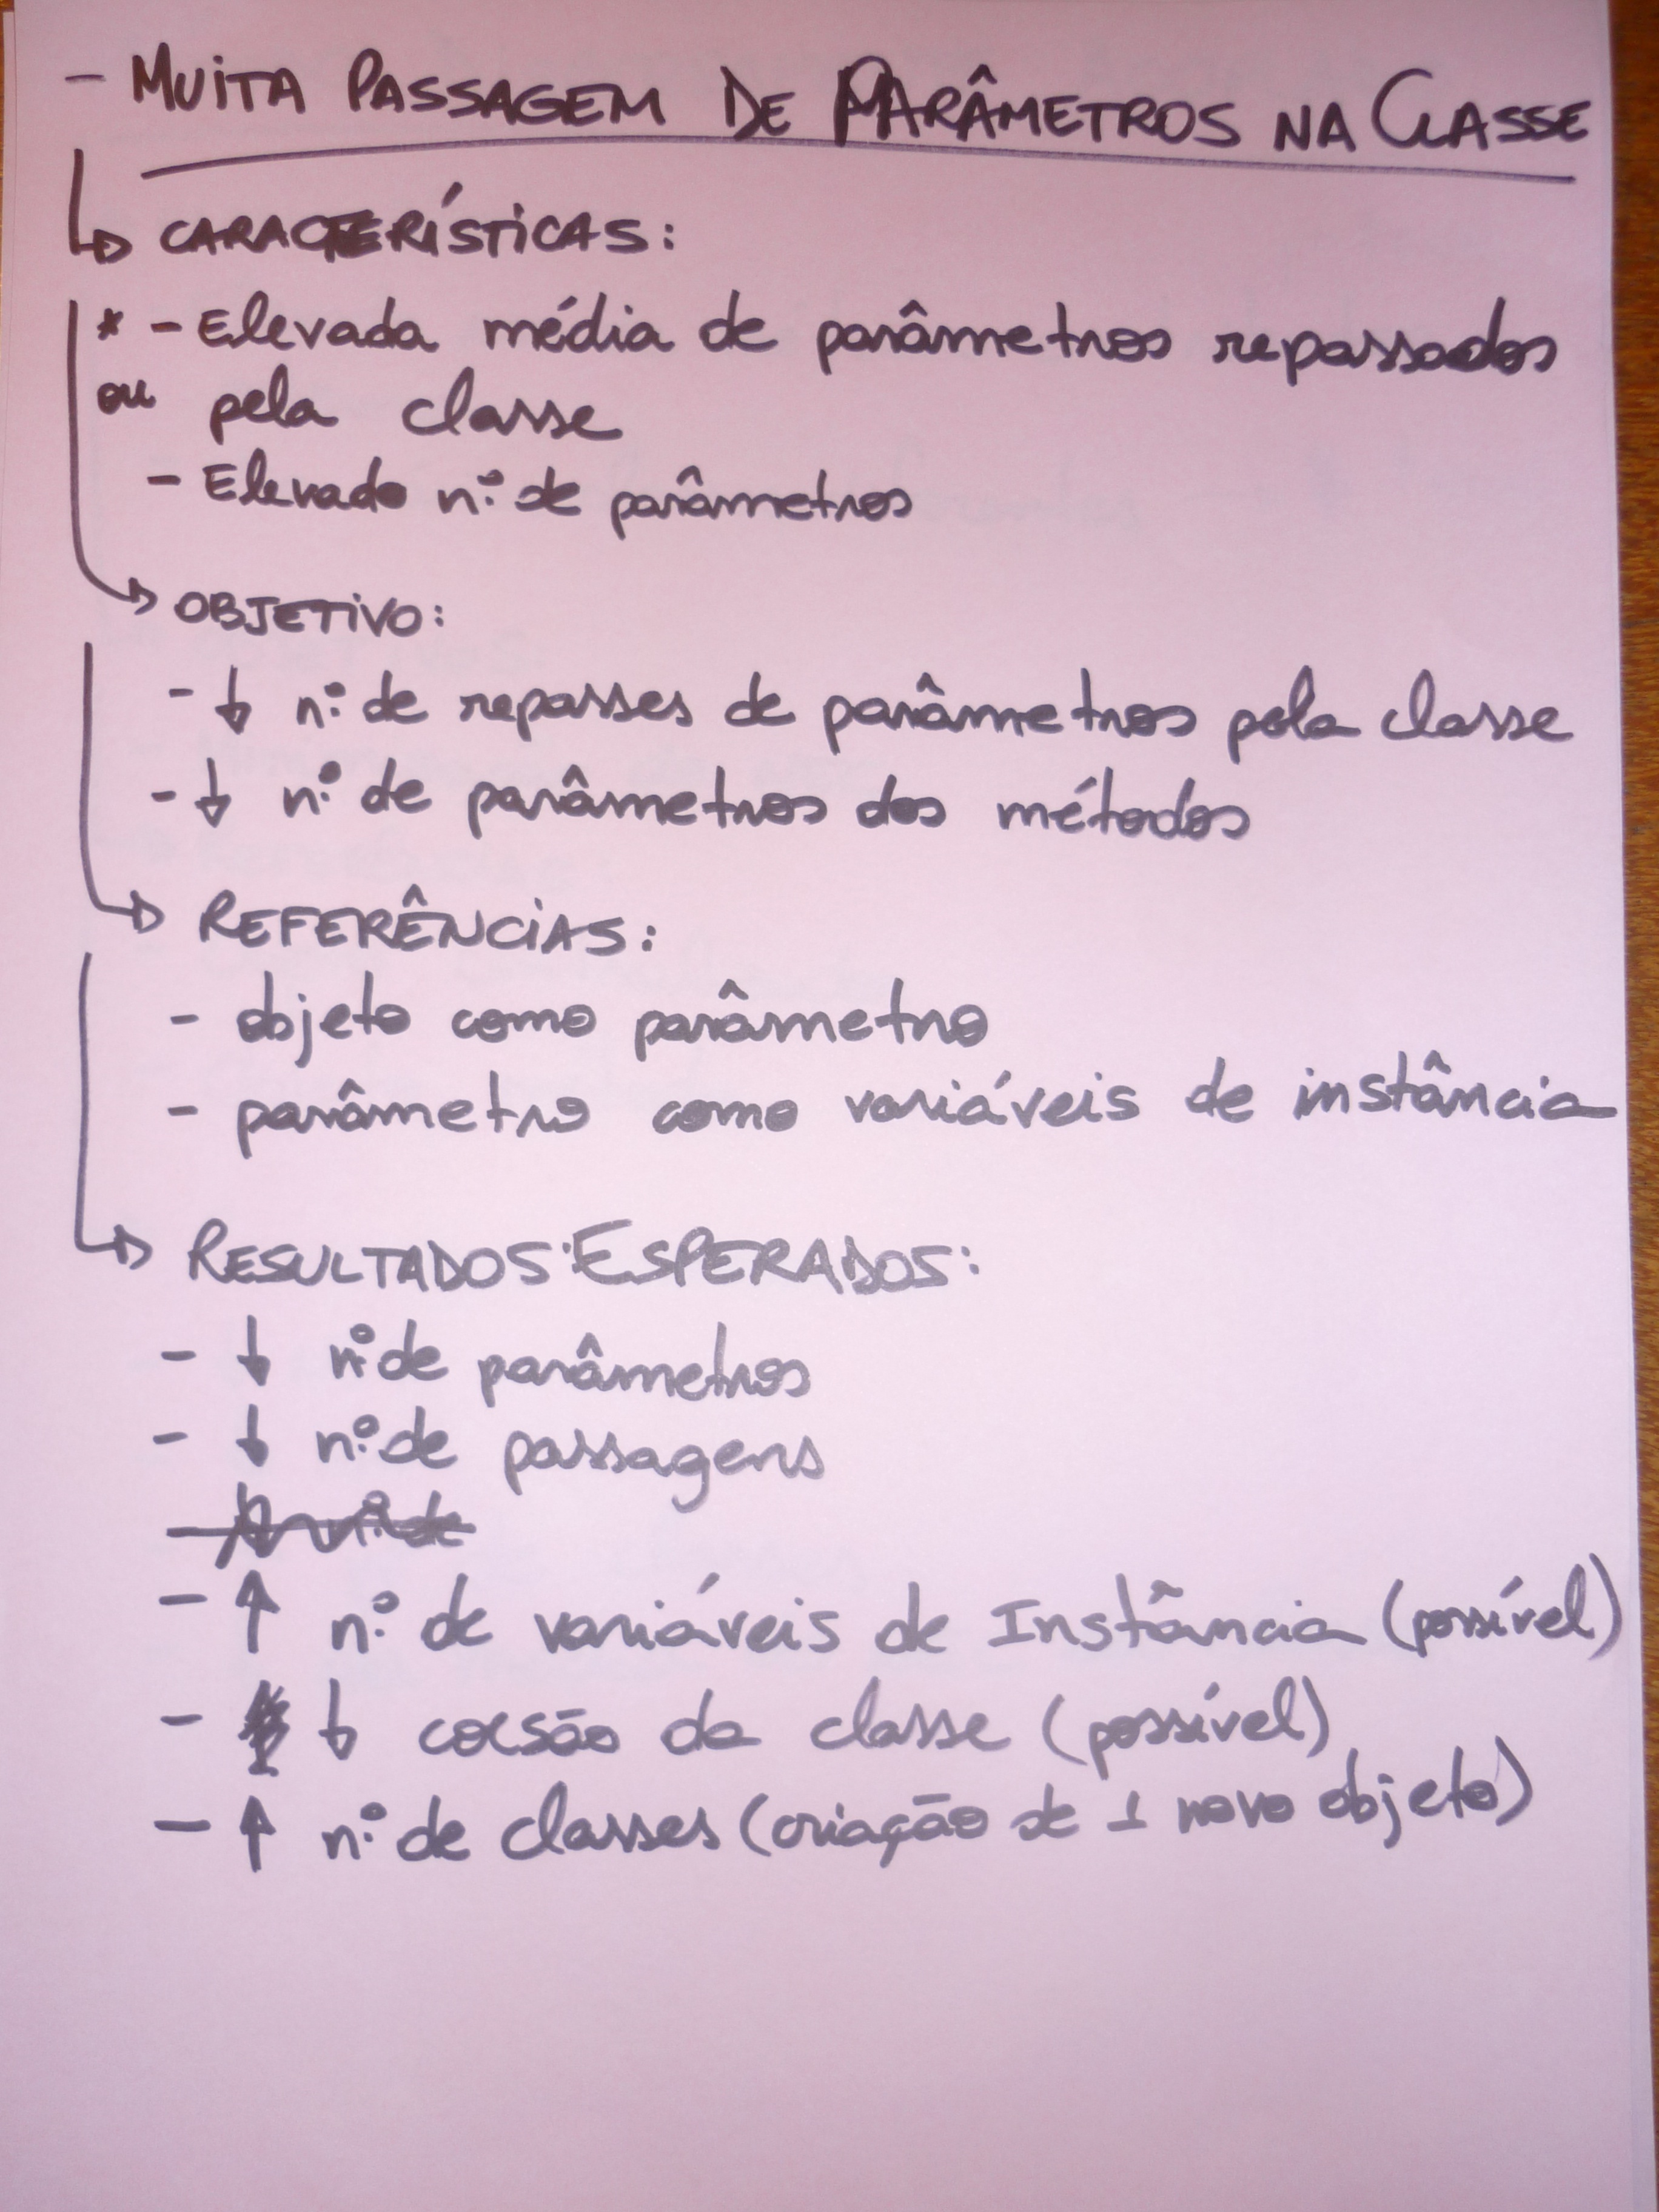 - MUITA PASSAGEM DE PARÂMETROS NA CLASSE
↳ CARACTERÍSTICAS:
* - Elevada média de parâmetros repassados
ou pela classe
- Elevado nº de parâmetros
↳ OBJETIVO:
- ↓ nº de repasses de parâmetros pela classe
- ↓ nº de parâmetros dos métodos
↳ REFERÊNCIAS:
- objeto como parâmetro
- parâmetro como variáveis de instância
↳ RESULTADOS ESPERADOS:
- ↓ nº de parâmetros
- ↓ nº de passagens
- ↑ nº de variáveis de Instância (possível)
- ↓ coesão da classe (possível)
- ↑ nº de classes (criação de 1 novo objeto)